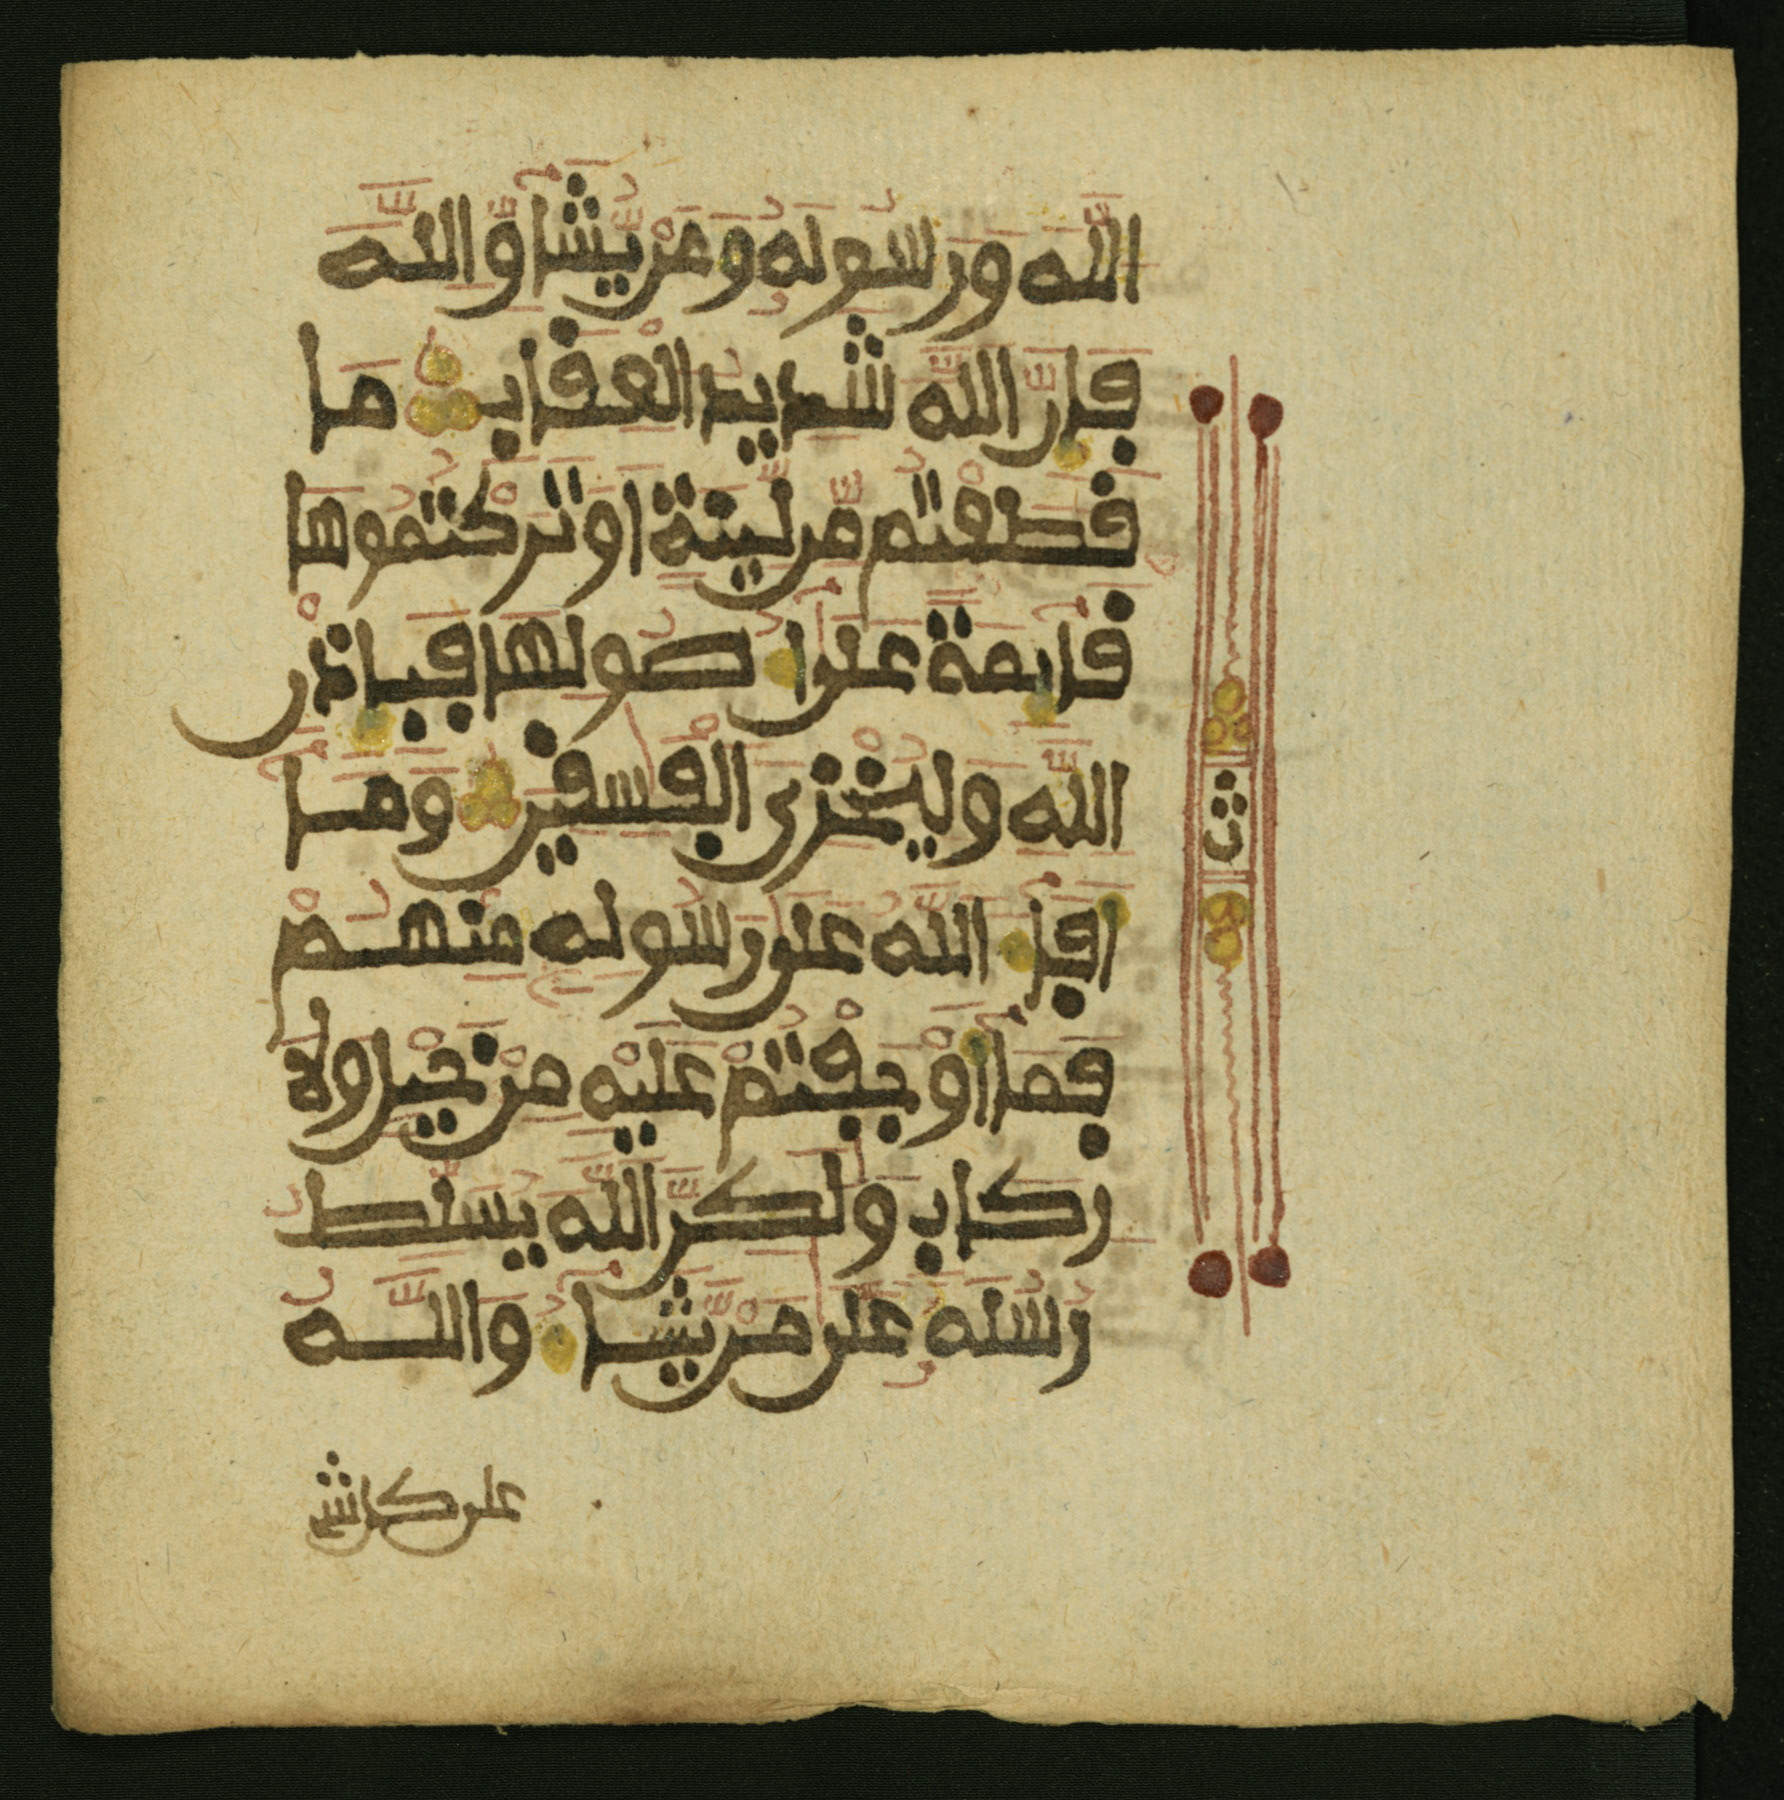 الله ورسوله ومن يشاق الله
فان الله شديد العقاب ما
قطعتم من لينة او تركتموها
قايمة على اصولها فباذن
الله وليخزي الفسقين وما
افا الله على رسوله منهم
فما اوجفتم عليه من خيل ولا
ركاب ولكن الله يسلط
رسله على من يشا والله
على كل شي